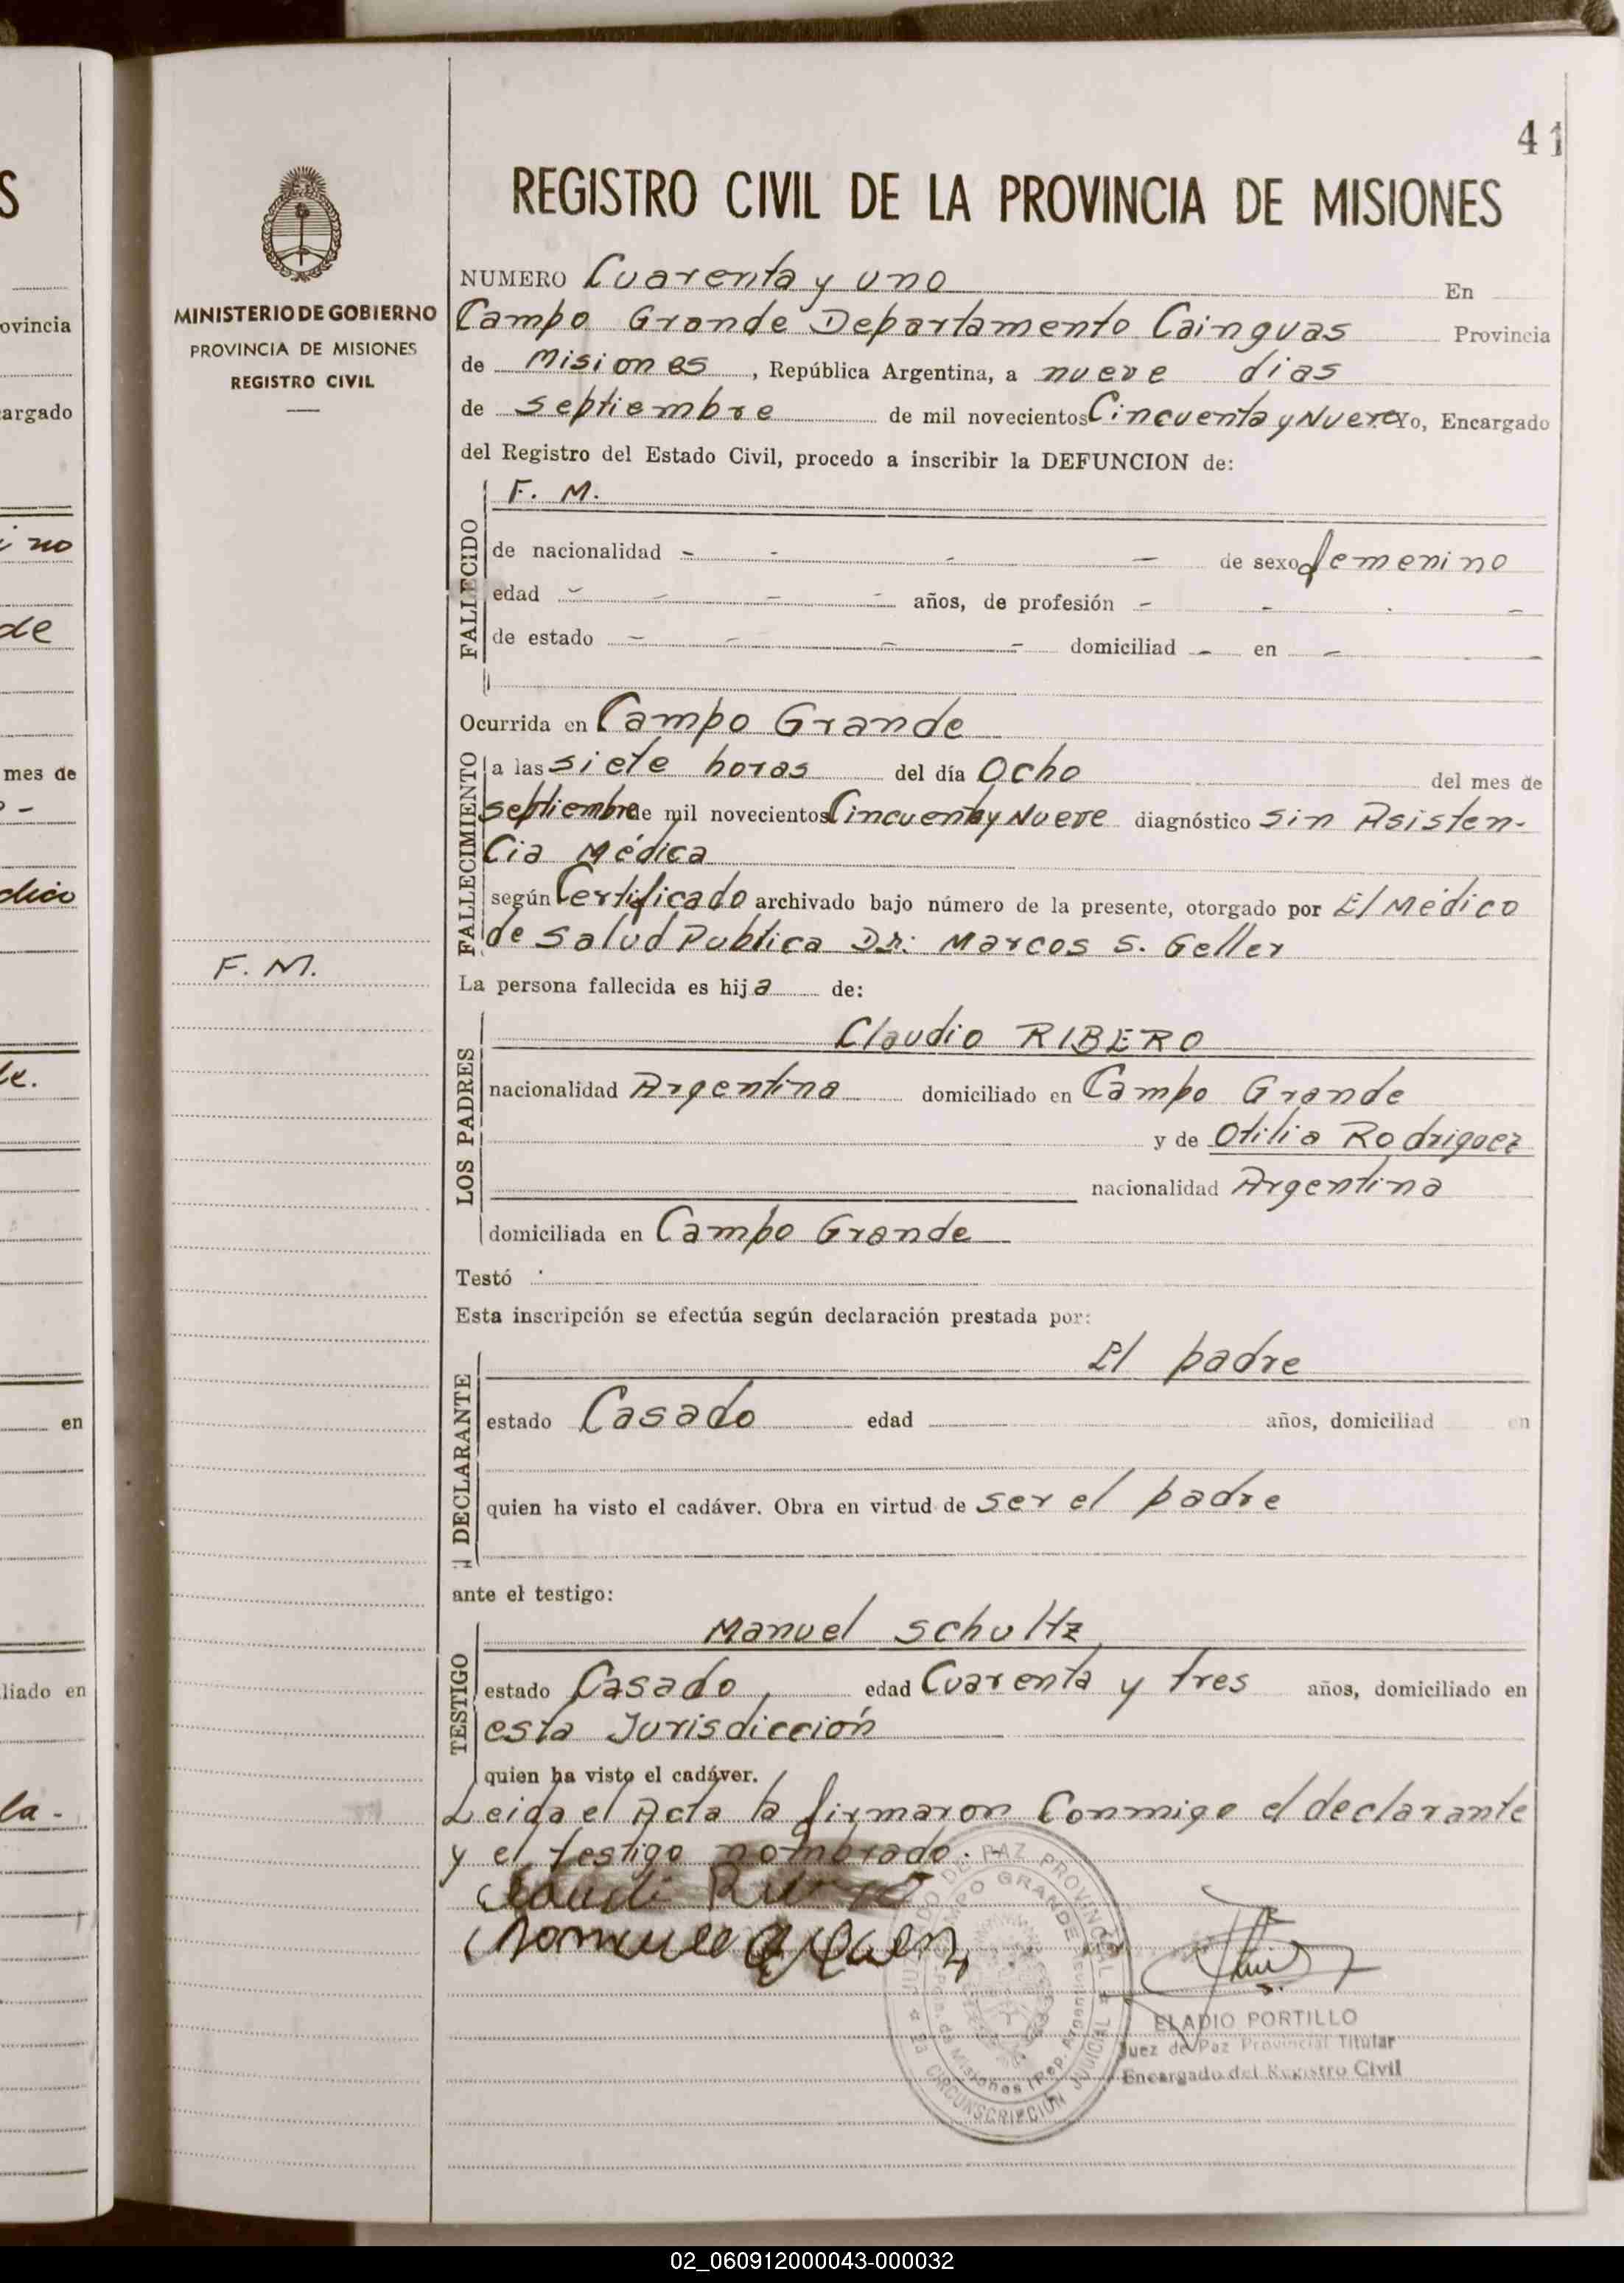 41
REGISTRO CIVIL DE LA PROVINCIA DE MISIONES
MINISTERIO DE GOBIERNO
PROVINCIA DE MISIONES
REGISTRO CIVIL
NUMERO Cuarenta y uno En
Campo Grande Departamento Cainguas Provincia
de Misiones, República Argentina, a nueve dias
de septiembre de mil novecientos Cincuenta y Nueve Yo, Encargado
del Registro del Estado Civil, procedo a inscribir la DEFUNCION de:
FALLECIDO
F. M.
de nacionalidad - - - - de sexo femenino
edad - - - - años, de profesión - - - -
de estado - - - - domiciliad - en - -
Ocurrida en Campo Grande
FALLECIMIENTO
a las siete horas del día Ocho del mes de
septiembre de mil novecientos Cincuenta y Nueve diagnóstico sin Asisten-
cia Médica
según Certificado archivado bajo número de la presente, otorgado por El Médico
de Salud Publica Dr: Marcos S. Geller
F. M.
La persona fallecida es hija de:
LOS PADRES
Claudio RIBERO
nacionalidad Argentina domiciliado en Campo Grande
y de Otilia Rodriguez
nacionalidad Argentina
domiciliada en Campo Grande
Testó
Esta inscripción se efectúa según declaración prestada por:
DECLARANTE
El padre
estado Casado edad años, domiciliad en
quien ha visto el cadáver. Obra en virtud de ser el padre
ante el testigo:
TESTIGO
Manuel Schultz
estado Casado, edad Cuarenta y tres años, domiciliado en
esta Jurisdicción
quien ha visto el cadáver.
Leida el Acta la firmaron Conmigo el declarante
y el testigo nombrado.-
ELADIO PORTILLO
Juez de Paz Provincial Titular
Encargado del Registro Civil
JUZGADO DE PAZ PROVINCIAL
CAMPO GRANDE
Misiones (Rep. Argentina)
CIRCUNSCRIPCIÓN JUDICIAL
S
ovincia
argado
ino
de
mes de
dico
le.
en
liado en
la -
02_060912000043-000032